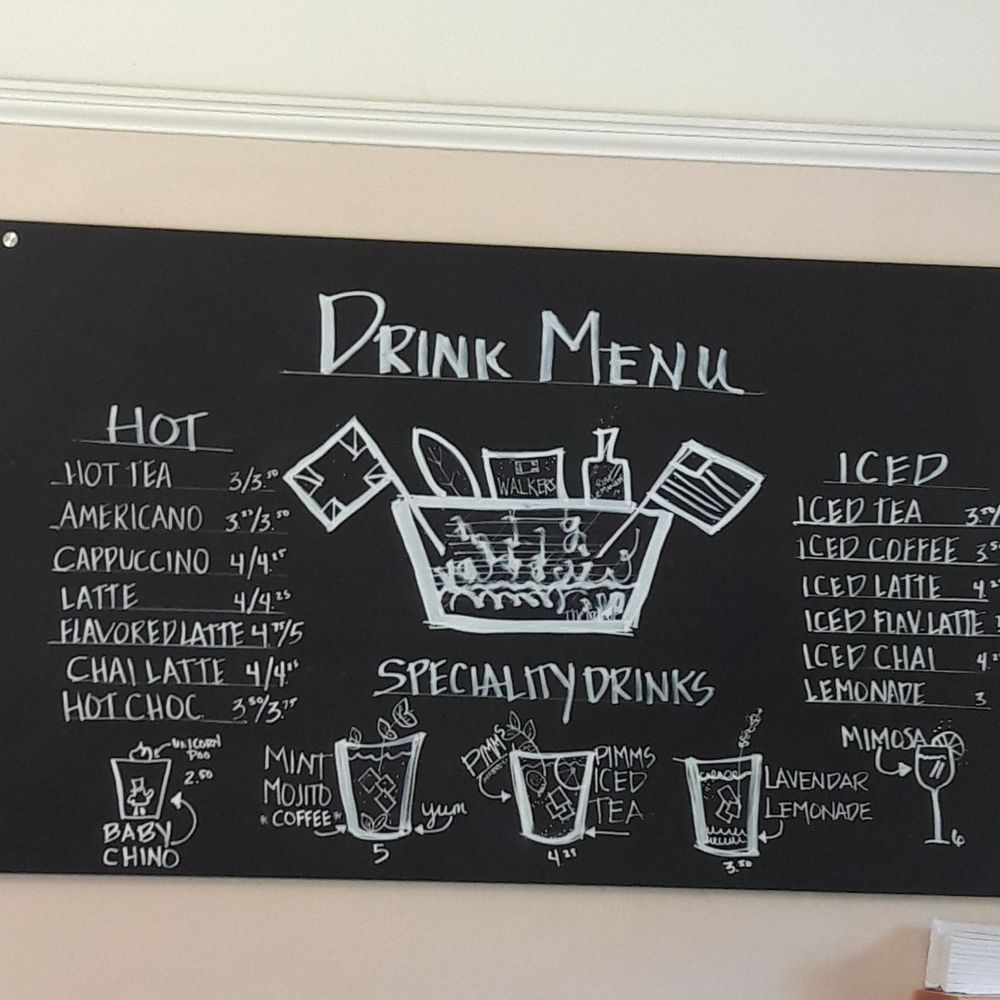 DRINK MENU
HOT
HOT TEA 3/3.50
AMERICANO 3.25/3.50
CAPPUCCINO 4/4.25
LATTE 4/4.25
FLAVORED LATTE 4.75/5
CHAI LATTE 4/4.25
HOT CHOC 3.50/3.75
UNICORN POO
2.50
BABY
CHINO
WALKERS
SPECIALITY DRINKS
MINT
MOJITO
*COFFEE*
yum
5
PIMMS
PIMMS
ICED
TEA
4.25
LAVENDAR
LEMONADE
3.50
ICED
ICED TEA 3.50/
ICED COFFEE 3.5
ICED LATTE 4.2
ICED FLAV LATTE
ICED CHAI 4.2
LEMONADE 3
MIMOSA
6